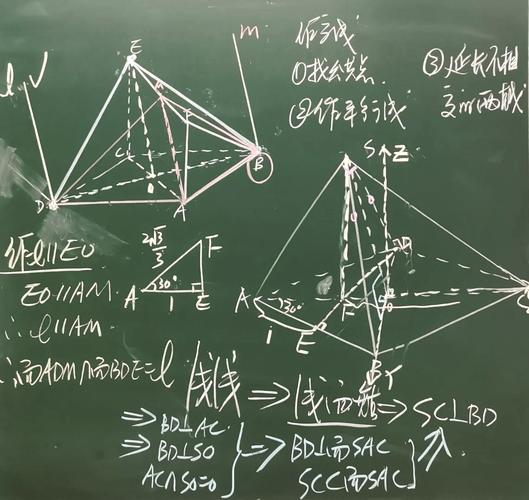 作交线
①找结点
②作平行线
③延长不相
交的两线
l
m
E
C
D
A
B
作l∥EO
EO∥AM.
∴l∥AM
∴面ADM∩面BDE=l
2√3
3
F
A
30°
1
E
S
Z
A
30°
F
1
E
B
Y
线线
⇒线面
⇒SC⊥BD
⇒BD⊥AC.
⇒BD⊥SO
AC∩SO=O
⇒BD⊥面SAC
SC⊂面SAC